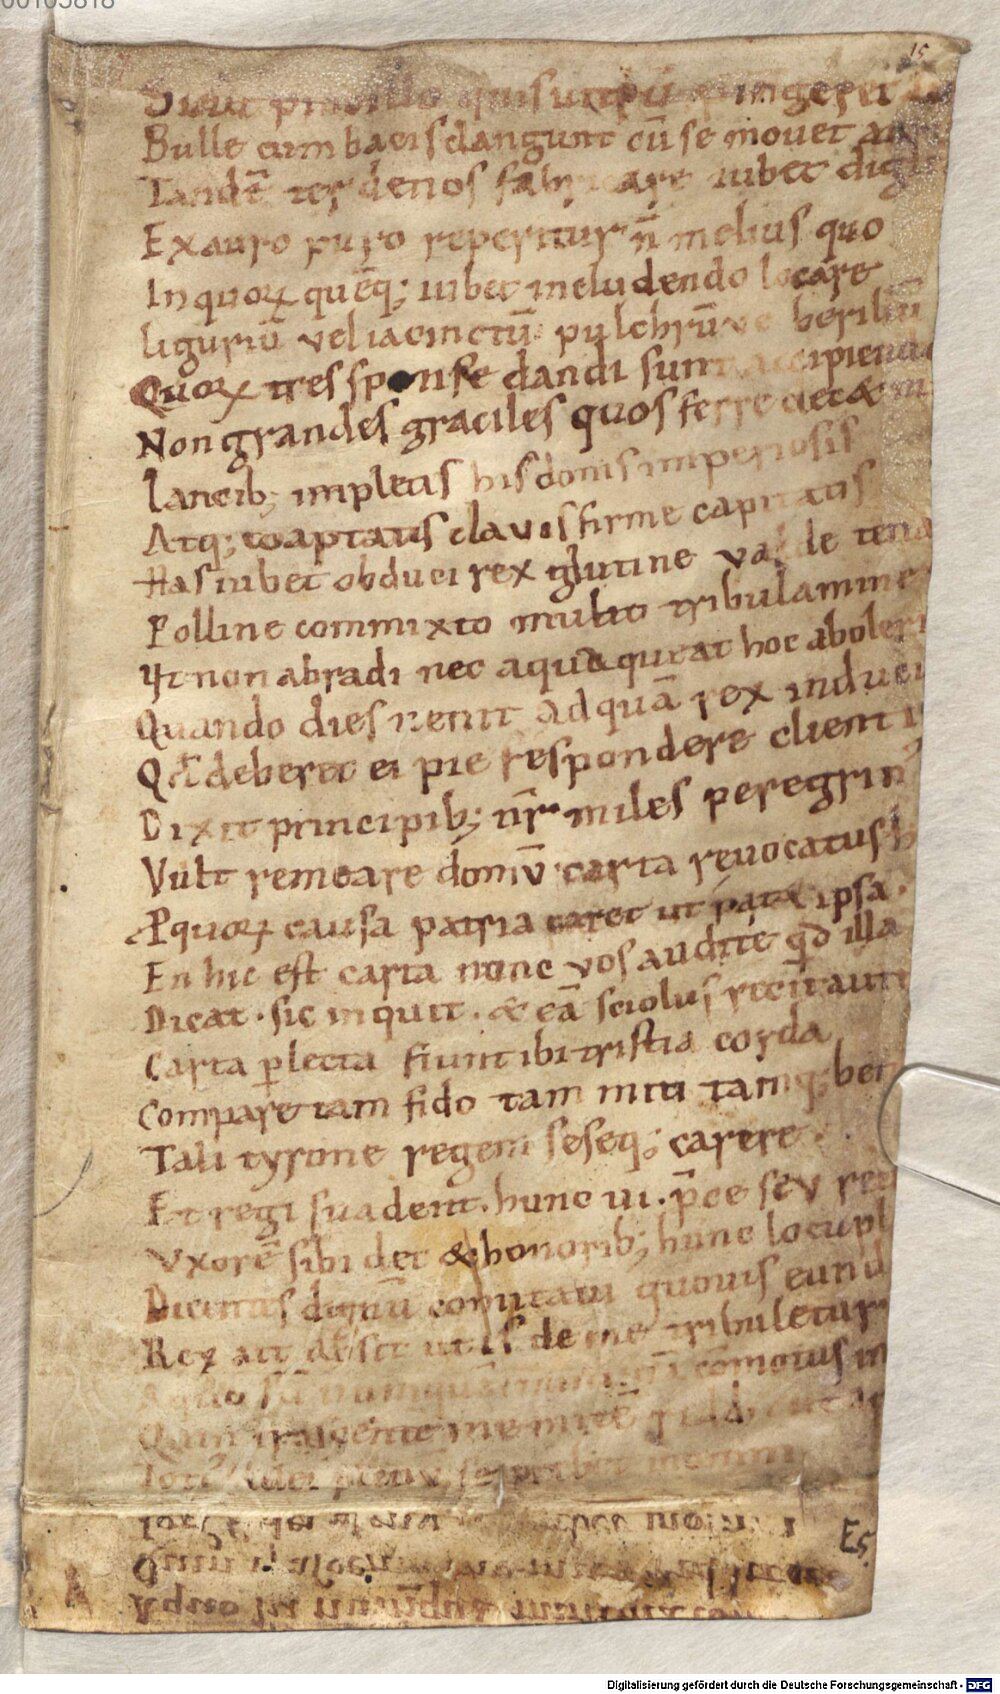 00105818
15
Bulle cum bacis clangunt cū se mouet
Tandē ter denos fabricare iubet
Ex auro puro reperitur n̄ melius quo
In quoꝝ quēq; iubet includendo locare
Liguriū vel iacinctū pulchrūve berillū
Quoꝝ tres sponse dandi sunt accipiend
Non grandes graciles quos ferre decet
Lancib; impletis his donis imperiosis
Atq; coaptatis clavis firme capitatis
Has iubet obduci rex glutine valde tena
Polline commixto multo tribulamine
Vt non abradi nec aqua queat hoc aboleri
Quando dies venit ad quā rex induci
Qd deberet ei pie respondere client
Dixit principib; nr̄ miles peregrin
Vult remeare domū carta revocatus h
Per quoꝝ causa patria caret ut patet ipsa.
En hic est carta nunc vos audite qd illa
Dicat. sic inquit. & eā sciolus recitavit
Carta ꝑlecta fiunt ibi tristia corda
Compare tam fido tam miti tamq; ben
Tali tyrone regem seseq; carere.
Et regi suadent. hunc vi. p̄ce seu re
Vxorē sibi det & honorib; hunc locupl
Dicentes dignū comitatu quovis eund
Rex ait absit ut is de me tribuletur
A quo sū numquā commotus
Quin irascente me mitē
Es
Digitalisierung gefördert durch die Deutsche Forschungsgemeinschaft - DFG